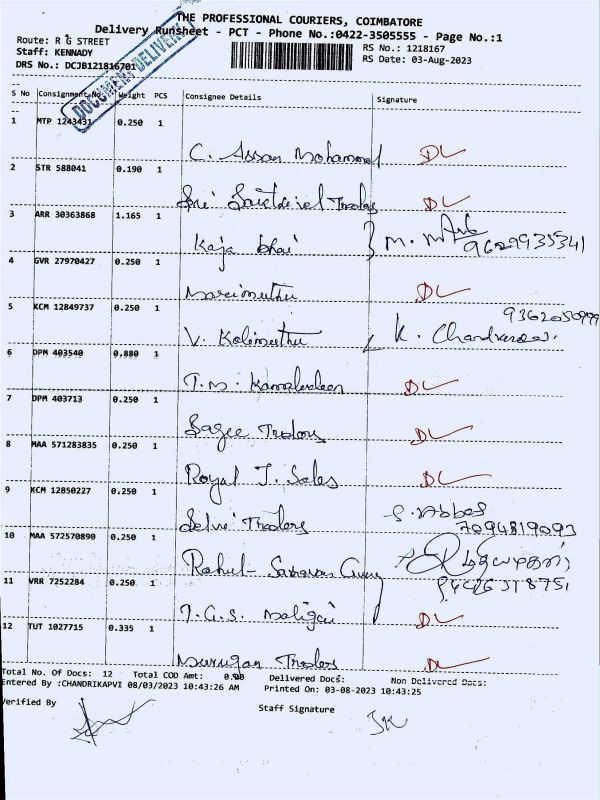 THE PROFESSIONAL COURIERS, COIMBATORE
Delivery Runsheet - PCT - Phone No.:0422-3505555 - Page No.:1
Route: R G STREET
RS No.: 1218167
Staff: KENNADY
RS Date: 03-Aug-2023
DRS No.: DCJB121816701
DOCUMENT DELIVERY
S No Consignment No. Weight PCS Consignee Details Signature
1 MTP 1243431 0.250 1
C. Assan Mohammed DL
2 STR 588041 0.190 1
Sri Traders DL
3 ARR 30363868 1.165 1
Kaja bhai M. 9629935341
4 GVR 27970427 0.250 1
Marimuthu DL
9362050999
5 KCM 12849737 0.250 1
V. Kalimuthu K.
6 DPM 403540 0.880 1
T.M. Kamaludeen DL
7 DPM 403713 0.250 1
Sagee Traders DL
8 MAA 571283835 0.250 1
Royal T. Sales DL
9 KCM 12850227 0.250 1
Selvi Traders S. Abbas
7094819093
10 MAA 572570890 0.250 1
Rahul
11 VRR 7252284 0.250 1
T.G.S. Maligai DL
12 TUT 1027715 0.335 1
Murugan Traders DL
Total No. Of Docs: 12 Total COD Amt: 0.00 Delivered Docs: Non Delivered Docs:
Entered By :CHANDRIKAPVI 08/03/2023 10:43:26 AM Printed On: 03-08-2023 10:43:25
Verified By
Staff Signature